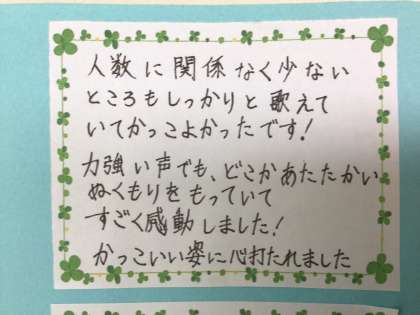 人数に関係なく少ない
ところもしっかりと歌えて
いてかっこよかったです!
力強い声でも、どこかあたたかい
ぬくもりをもっていて
すごく感動しました!
かっこいい姿に心打たれました